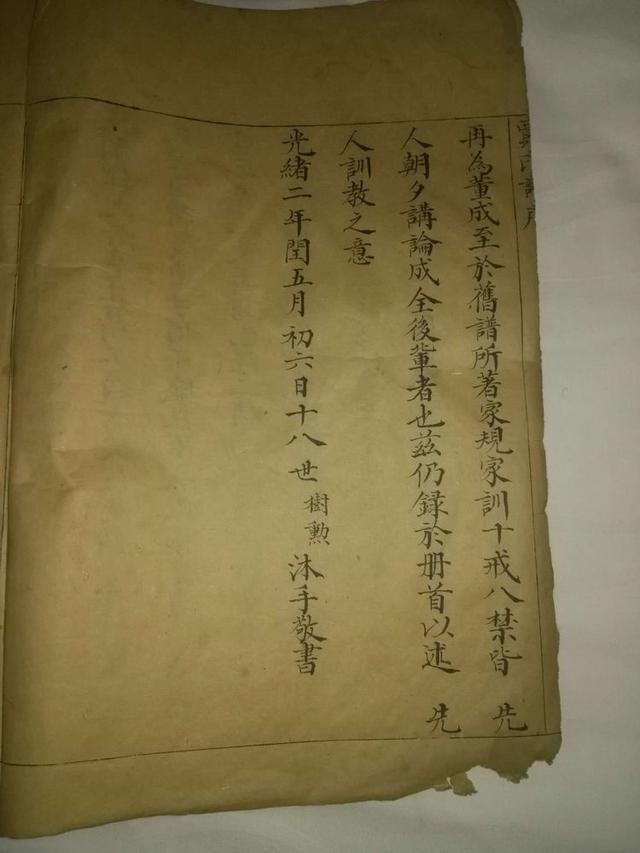 再為董成至於舊譜所著家規家訓十戒八禁皆 先
人朝夕講論成全後輩者也茲仍録於册首以述 先
人訓教之意
光緒二年閏五月初六日十八世樹勲沐手敬書